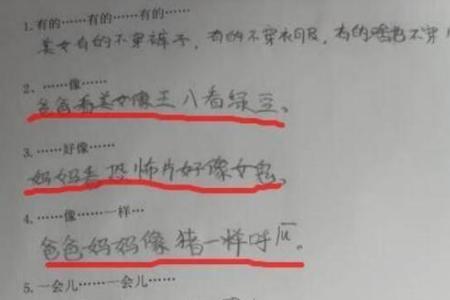 1. 有的……有的……有的……
美女有的不穿裤子，有的不穿衣服，有的啥都不穿
2、……像……
爸爸看美女像王八看绿豆。
3. ……好像……
妈妈看恐怖片好像女鬼。
4. ……像……一样…
爸爸妈妈像猪一样呼
5. 一会儿……一会儿……